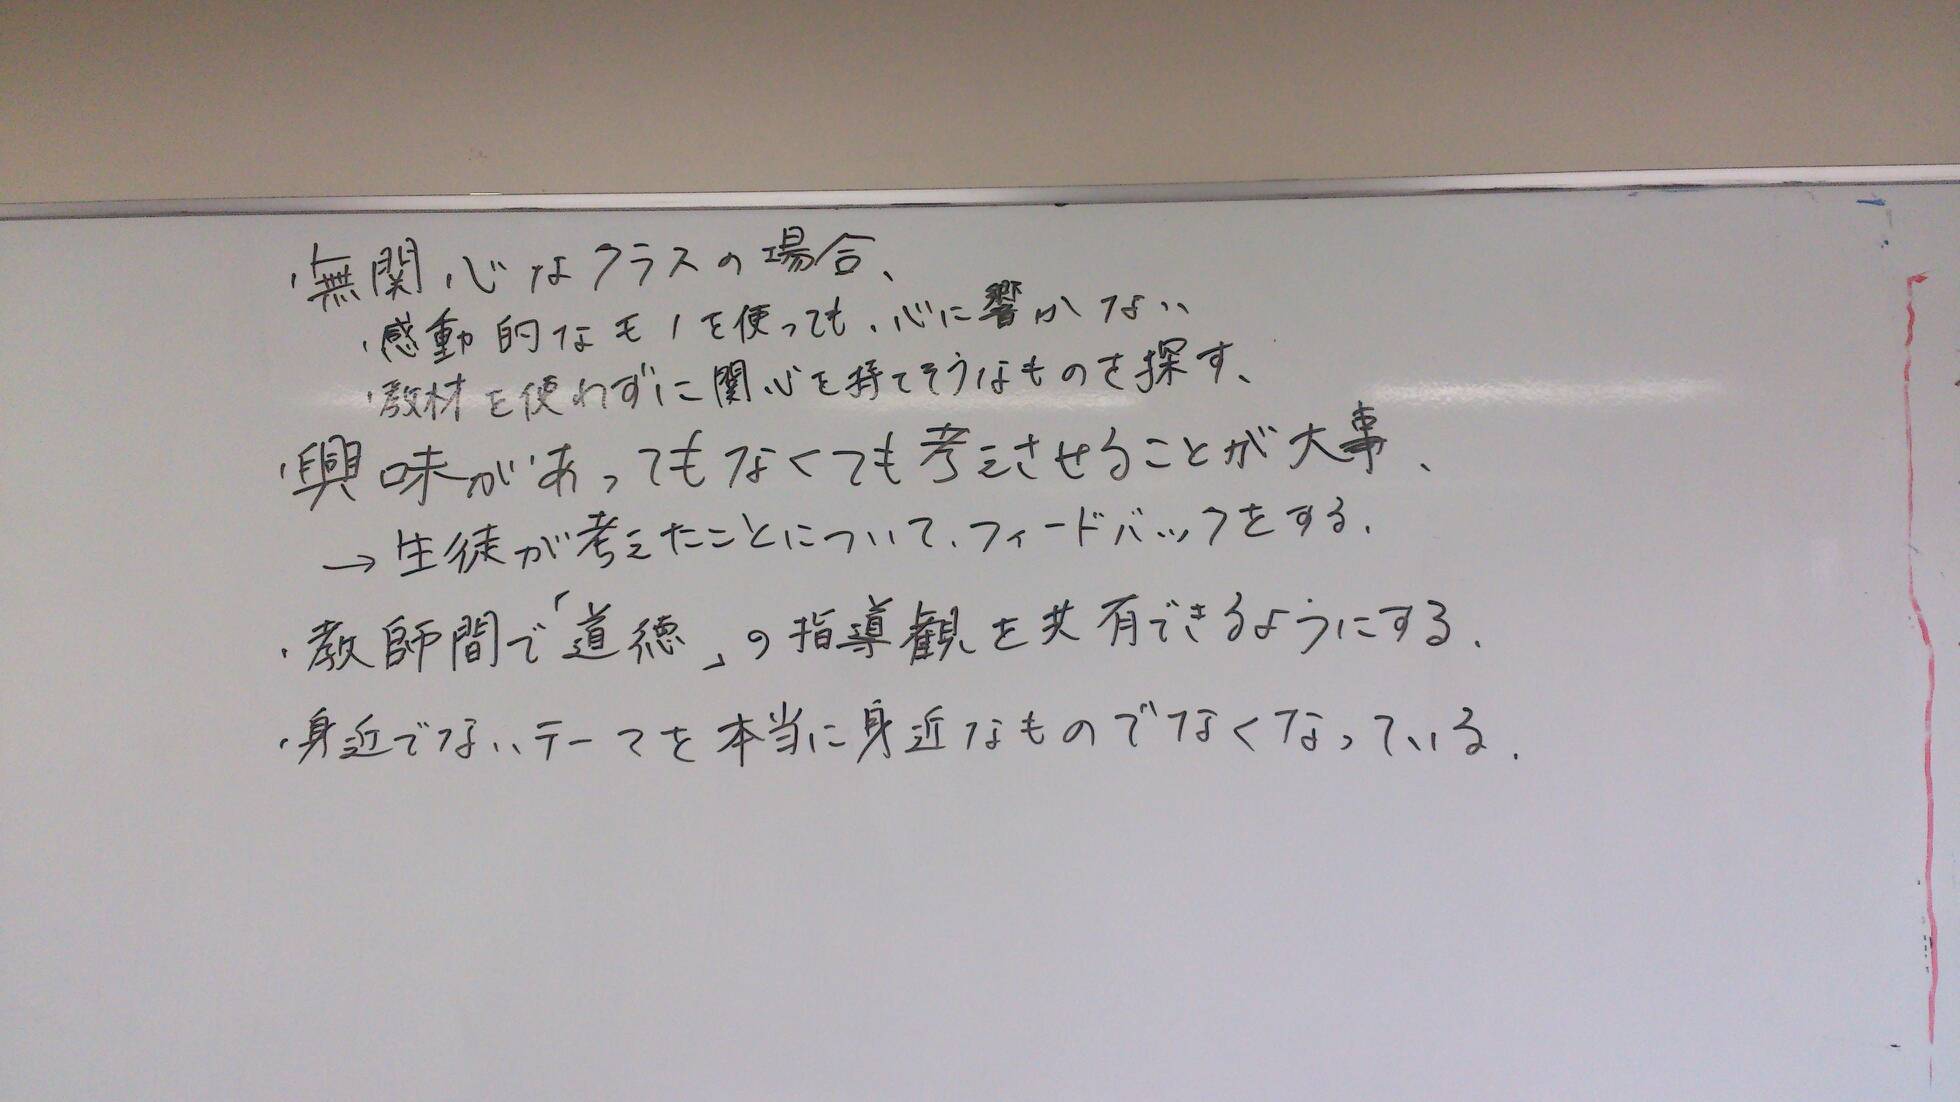 ・無関心なクラスの場合、
・感動的なモノを使っても、心に響かない
・教材を使わずに関心を持てそうなものを探す、
・興味があってもなくても考えさせることが大事、
→生徒が考えたことについて、フィードバックをする.
・教師間で「道徳」の指導観を共有できるようにする.
・身近でないテーマを本当に身近なものでなくなっている.